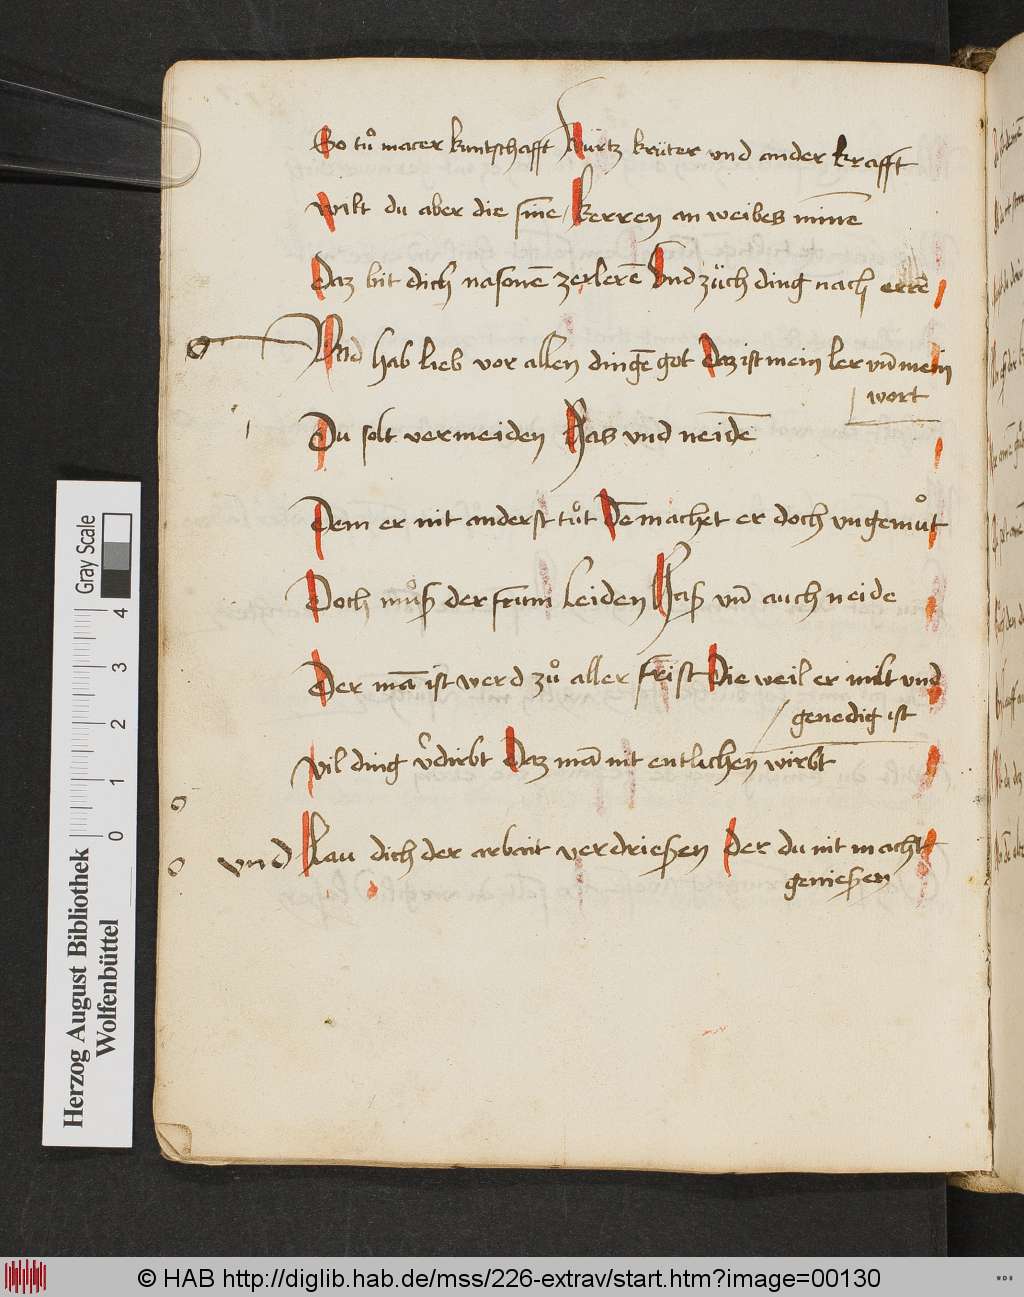 So tuͦ macer kuntschafft Wurtz kruter vnd ander krafft
wilt du aber die sin̄e / kerren an weibes min̄e
Daz bit dich nasonē zerlerē Vnd züch ding nach errē
Vnd hab lieb vor allen dingē got Daz ist mein ler vn̄ mein
wort
Du solt vermeiden Has vnd neidē
Dem er nit anderst tuͦt Dē machet er doch vngemuͦt
Doch muͦß der frum leiden Haß vn̄ auch neide
Der mā ist werd zuͦ aller frist Die weil er milt vnd
genedig ist
vil ding v̄dirbt Daz mā nit entlichen wirbt
vnd Lau dich der arbait verdrießen Der du nit macht
genießen
Herzog August Bibliothek
Wolfenbüttel
0 1 2 3 4
Gray Scale
© HAB http://diglib.hab.de/mss/226-extrav/start.htm?image=00130